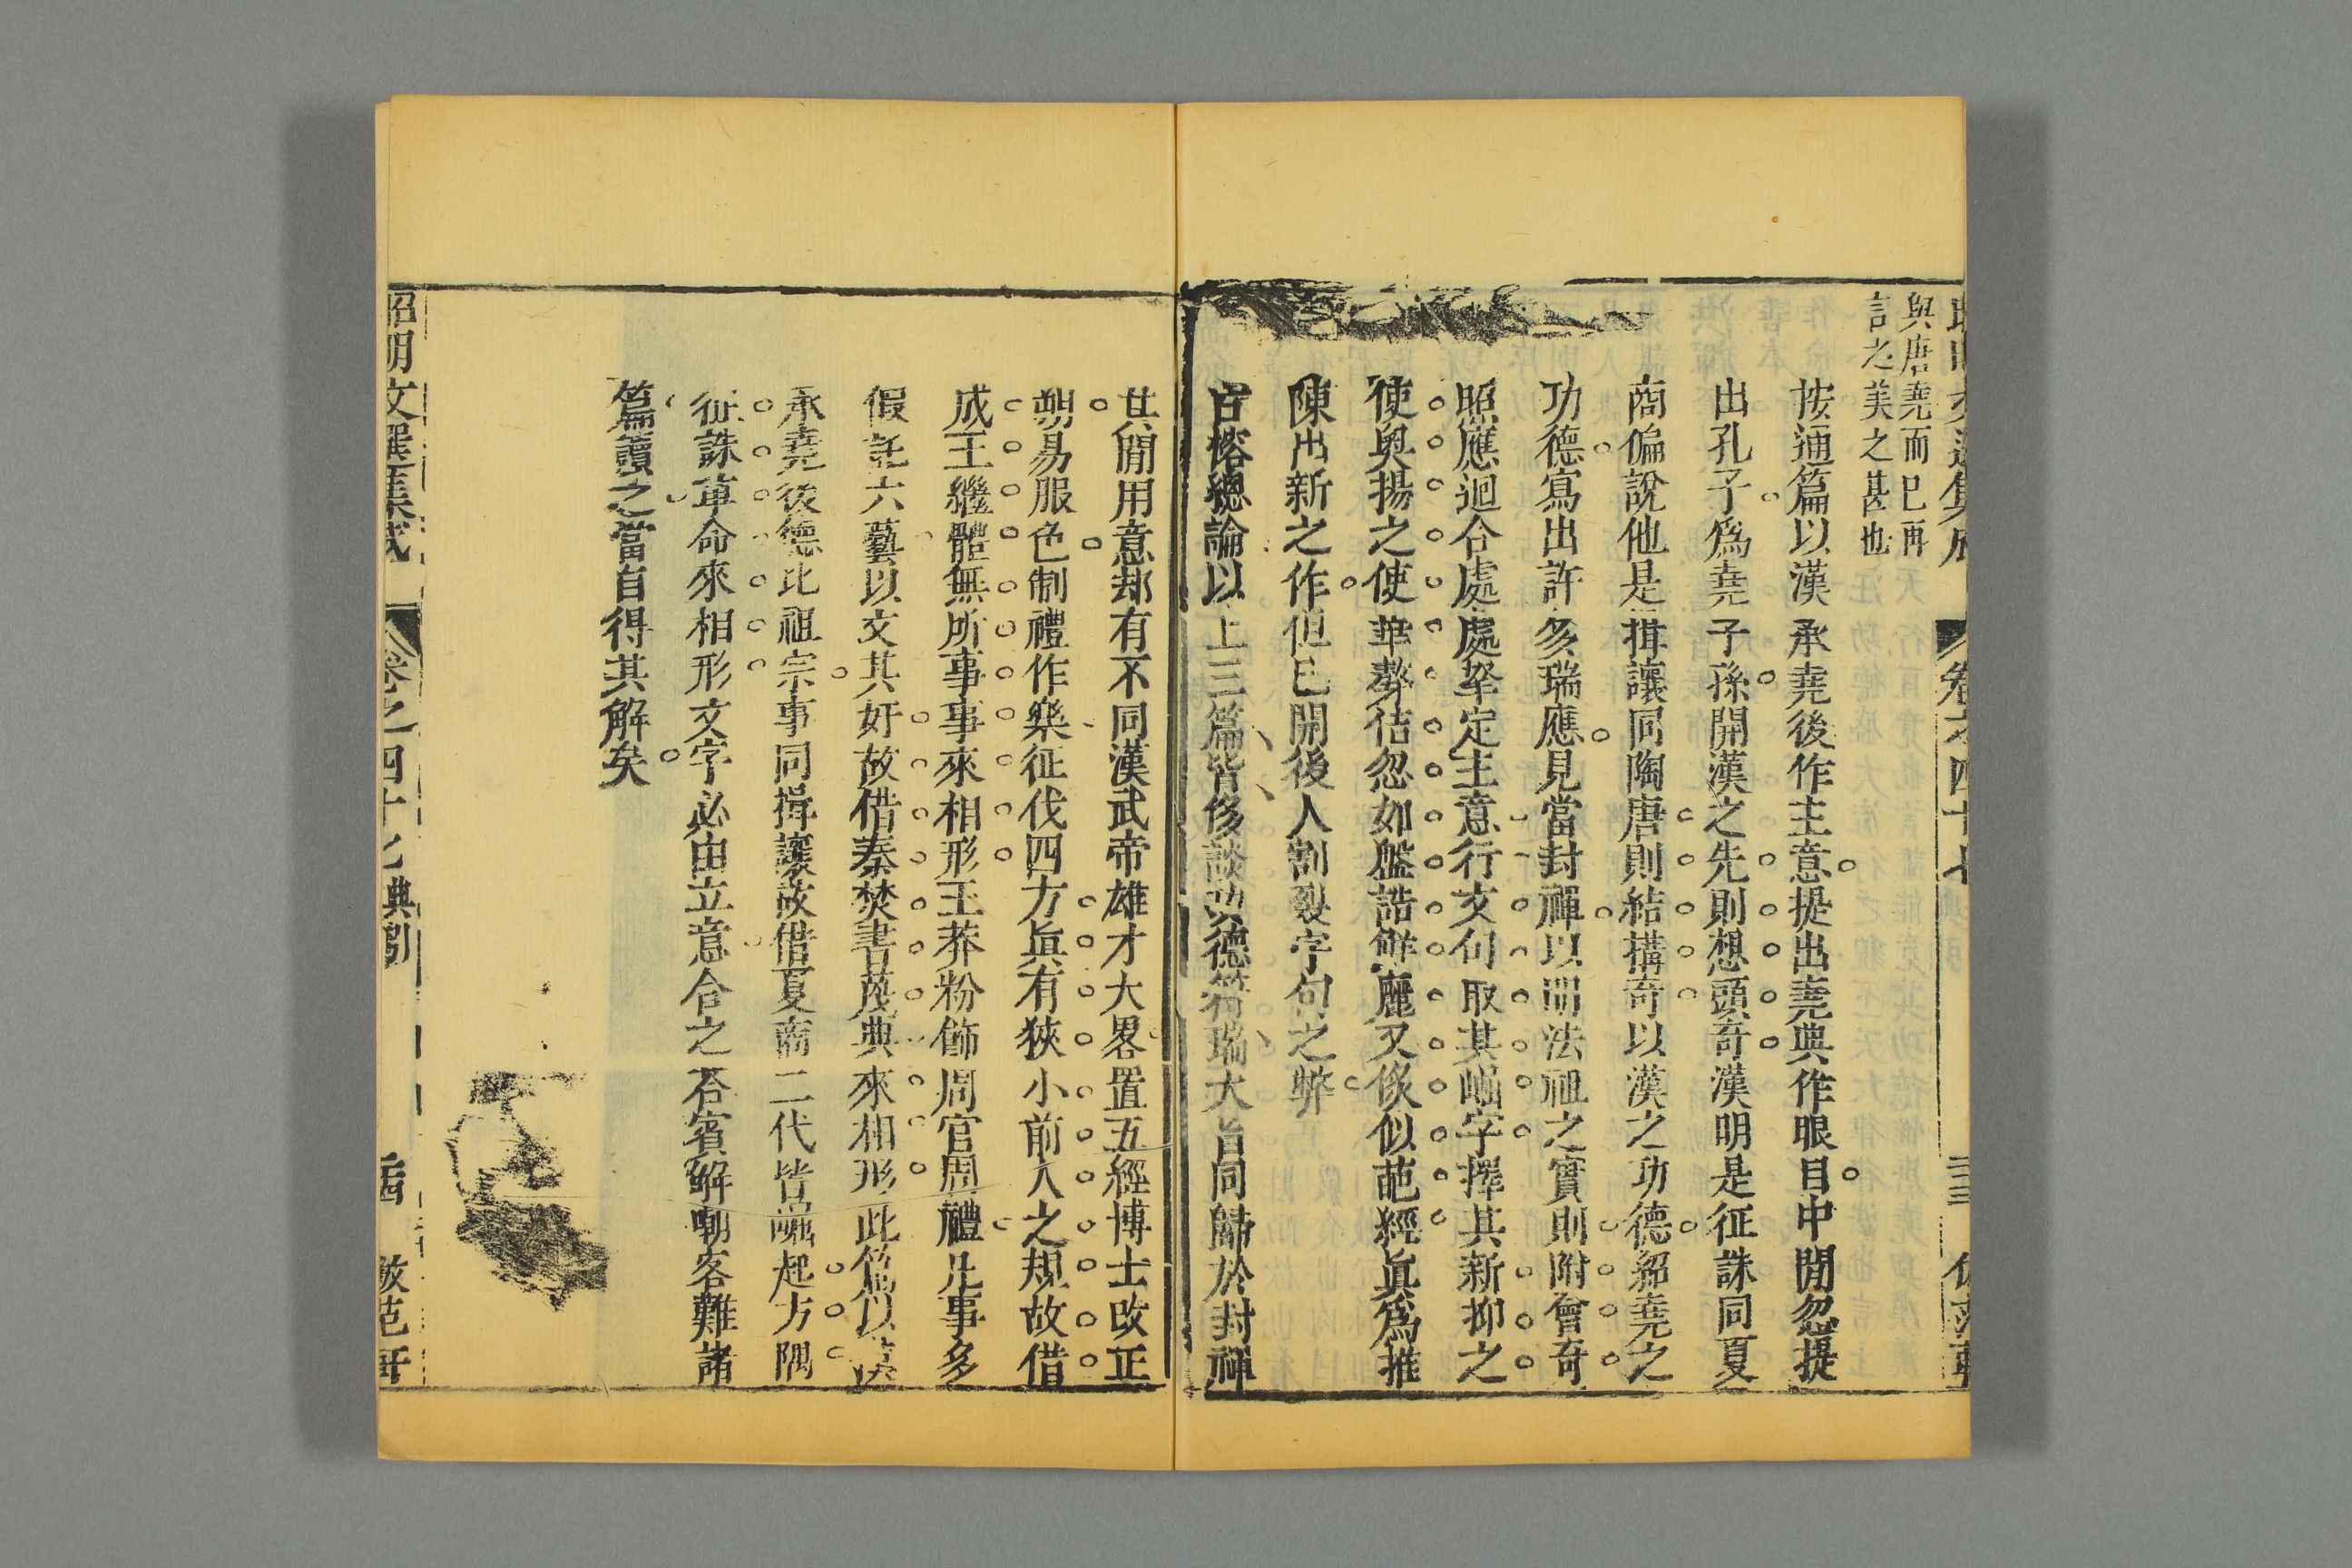 與唐堯而已再
言之美之甚也
按通篇以漢承堯後作主意提出堯典作眼目中閒忽提
出孔子爲堯子孫開漢之先則想頭奇漢明是征誅同夏
商偏說他是揖讓同陶唐則結搆奇以漢之功德紹堯之
功德寫出許多瑞應見當封禪以明法祖之實則附會奇
照應迴合處處拏定主意行文句取其崛字擇其新抑之
使奥揚之使華聱佶忽如盤誥鮮麗又倐似葩經眞爲推
陳出新之作但已開後人割裂字句之弊
古榕總論以上三篇皆侈談功德符瑞大旨同歸於封禪
其閒用意却有不同漢武帝雄才大畧置五經博士改正
朔易服色制禮作樂征伐四方眞有狹小前人之規故借
成王繼體無所事事來相形王莽粉飾周官周禮凡事多
假託六藝以文其奸故借秦焚書蔑典來相形此篇以漢
承堯後德比祖宗事同揖讓故借夏商二代皆崛起方隅
征誅革命來相形文字必由立意合之答賓解嘲客難諸
篇讀之當自得其解矣
昭明文選集成 卷之四十七典引